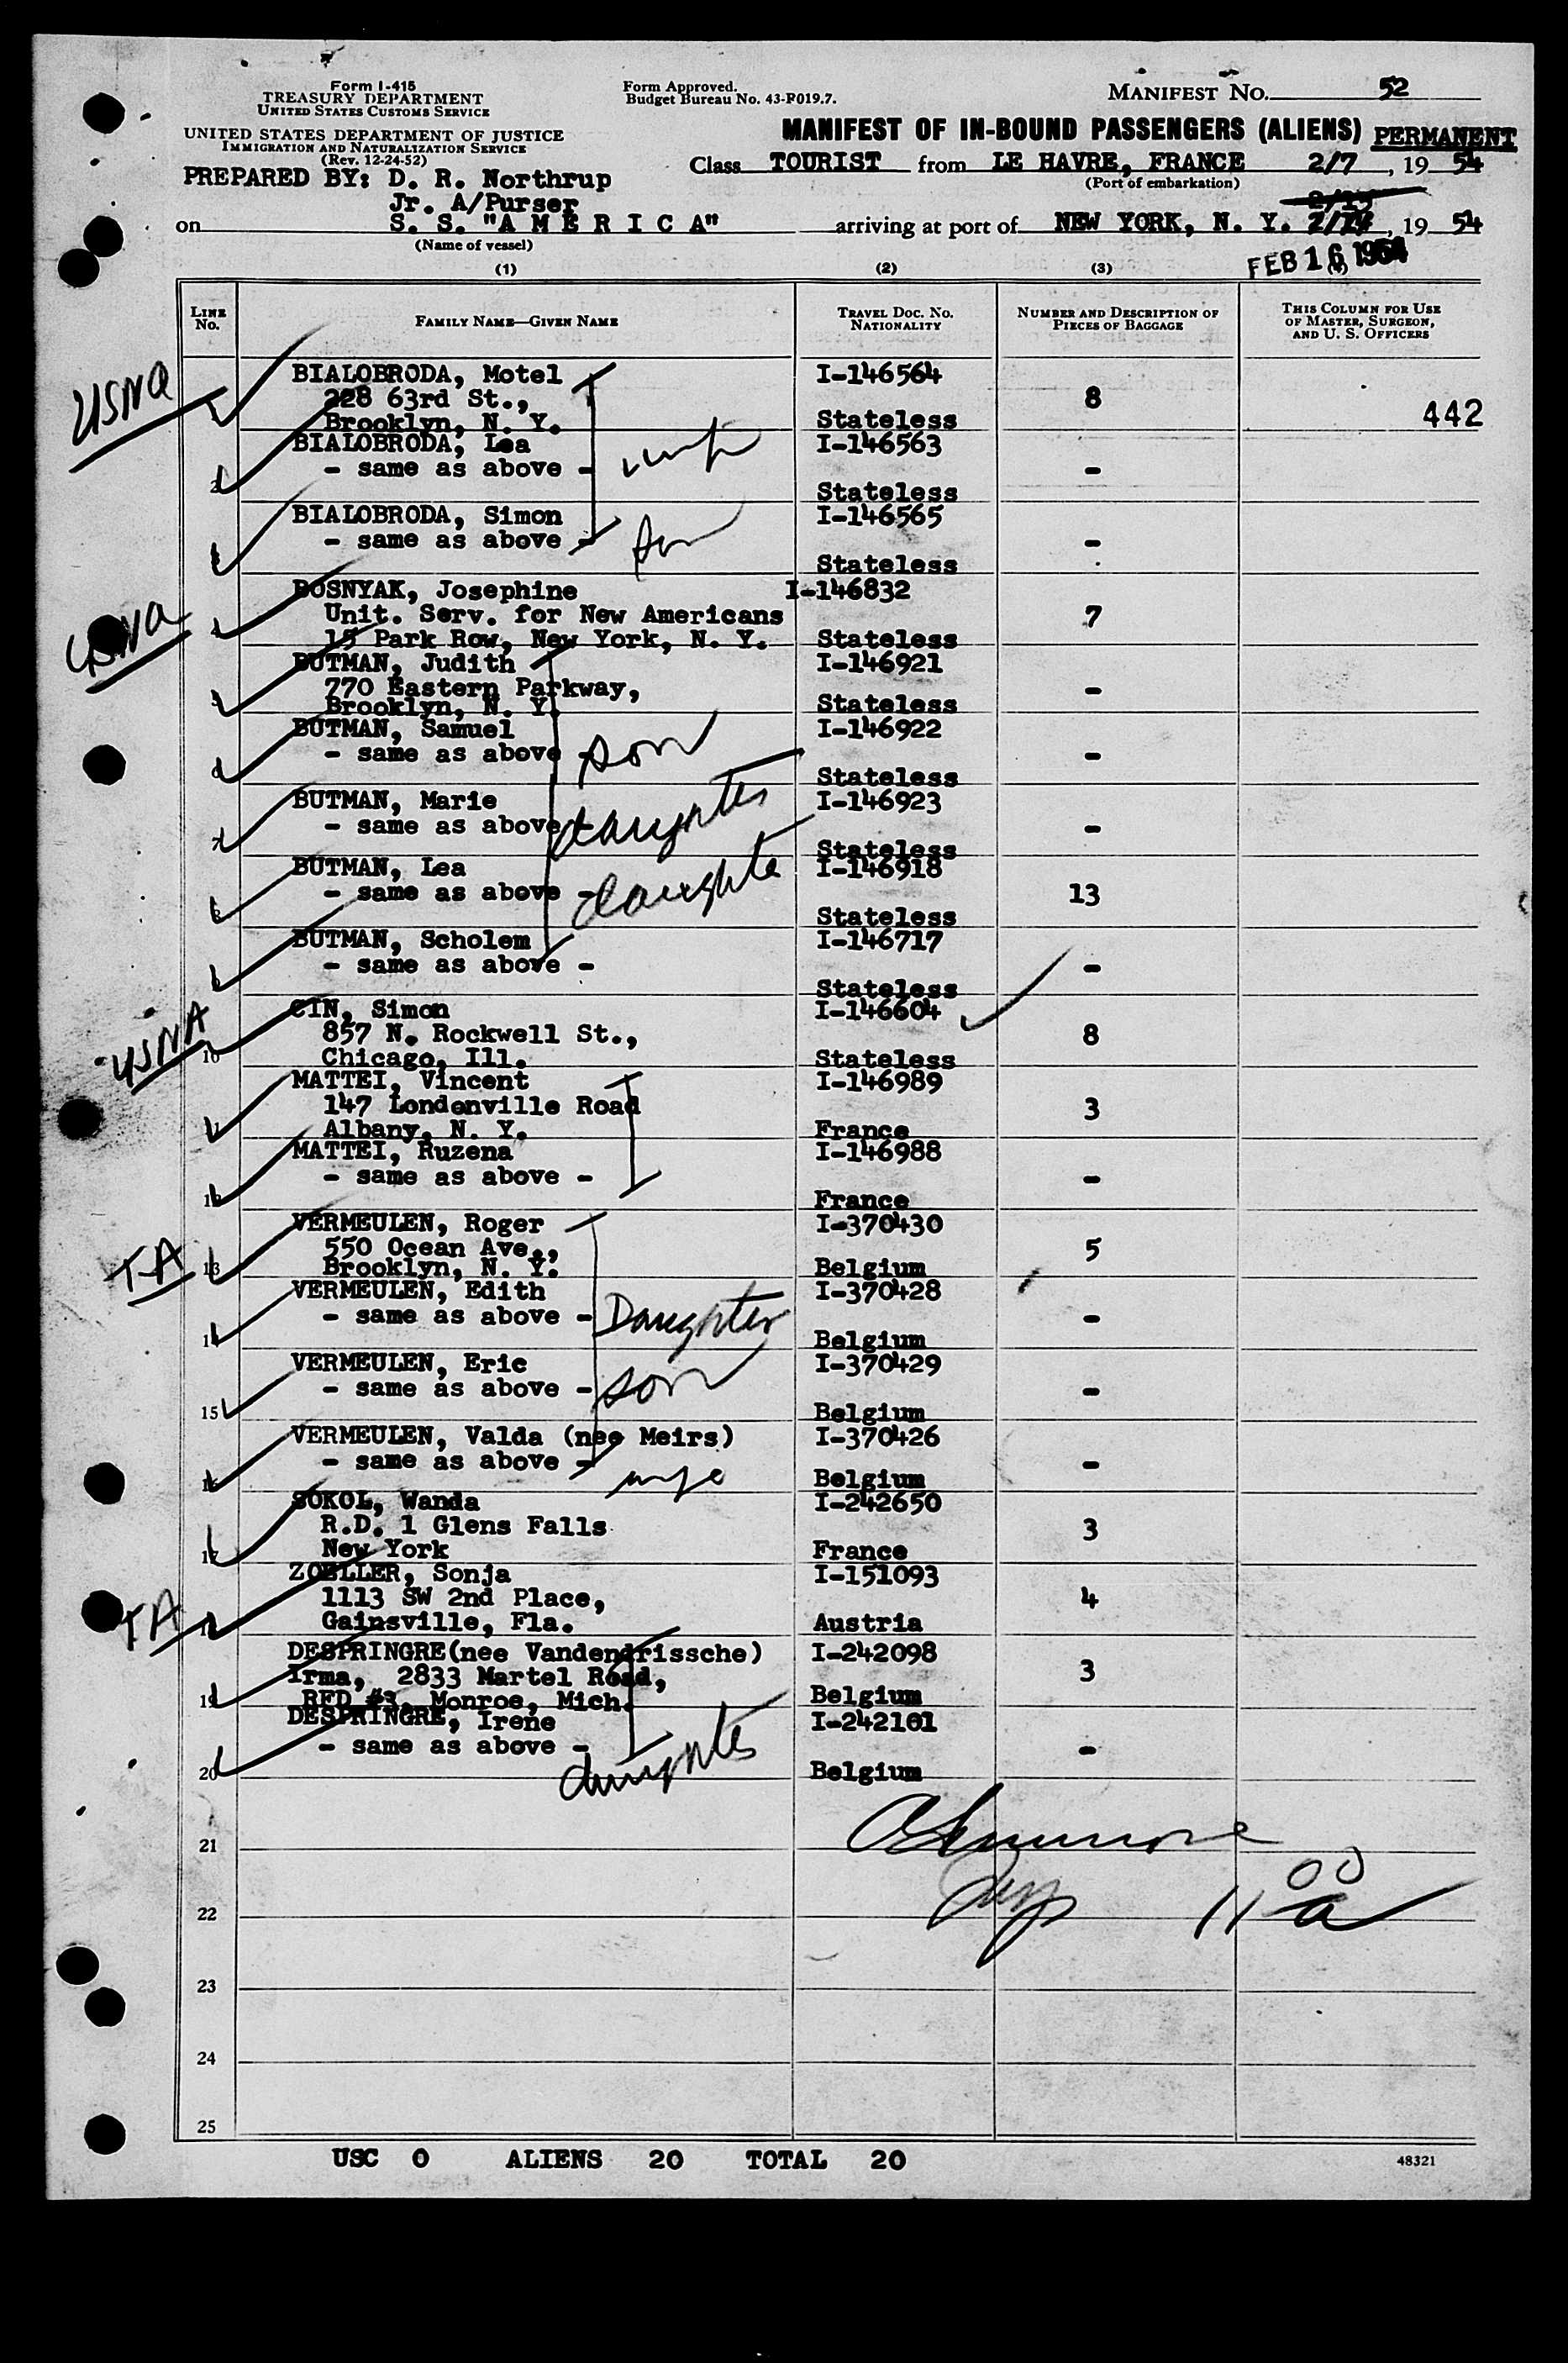 Form I-415
TREASURY DEPARTMENT
UNITED STATES CUSTOMS SERVICE
UNITED STATES DEPARTMENT OF JUSTICE
IMMIGRATION AND NATURALIZATION SERVICE
(Rev. 12-24-52)
Form Approved.
Budget Bureau No. 43-R019.7.
MANIFEST NO. 52
MANIFEST OF IN-BOUND PASSENGERS (ALIENS) PERMANENT
Class TOURIST from LE HAVRE, FRANCE 2/7, 19 54
(Port of embarkation)
PREPARED BY: D. R. Northrup
Jr. A/Purser
2/15
on S. S. "A M E R I C A" arriving at port of NEW YORK, N. Y. 2/14, 19 54
(Name of vessel)
FEB 16 1954
(1) (2) (3) (4)
LINE No. FAMILY NAME—GIVEN NAME TRAVEL DOC. NO. NATIONALITY NUMBER AND DESCRIPTION OF PIECES OF BAGGAGE THIS COLUMN FOR USE OF MASTER, SURGEON, AND U. S. OFFICERS
USNA
BIALOBRODA, Motel I-146564
1 228 63rd St., 8 442
Brooklyn, N. Y. Stateless
BIALOBRODA, Lea I-146563
2 - same as above - wife -
Stateless
BIALOBRODA, Simon I-146565
3 - same as above - son -
Stateless
USNA
BOSNYAK, Josephine I-146832
4 Unit. Serv. for New Americans 7
15 Park Row, New York, N. Y. Stateless
BUTMAN, Judith I-146921
5 770 Eastern Parkway, -
Brooklyn, N. Y. Stateless
BUTMAN, Samuel I-146922
6 - same as above - son -
Stateless
BUTMAN, Marie I-146923
7 - same as above - daughter -
Stateless
BUTMAN, Lea I-146918
8 - same as above - daughter 13
Stateless
BUTMAN, Scholem I-146717
9 - same as above - -
Stateless
USNA
CIN, Simon I-146604
10 857 N. Rockwell St., 8
Chicago, Ill. Stateless
MATTEI, Vincent I-146989
11 147 Londenville Road 3
Albany, N. Y. France
MATTEI, Ruzena I-146988
12 - same as above - -
France
TA
VERMEULEN, Roger I-370430
13 550 Ocean Ave., 5
Brooklyn, N. Y. Belgium
VERMEULEN, Edith I-370428
14 - same as above - Daughter -
Belgium
VERMEULEN, Eric I-370429
15 - same as above - son -
Belgium
VERMEULEN, Valda (nee Meirs) I-370426
16 - same as above - wife -
Belgium
SOKOL, Wanda I-242650
17 R.D. 1 Glens Falls 3
New York France
TA
ZOELLER, Sonja I-151093
18 1113 SW 2nd Place, 4
Gainsville, Fla. Austria
DESPRINGRE(nee Vandendrissche) I-242098
19 Irma, 2833 Martel Road, 3
RFD #3, Monroe, Mich. Belgium
DESPRINGRE, Irene I-242101
20 - same as above - daughter -
Belgium
21
22 11 00 a
23
24
25
USC 0 ALIENS 20 TOTAL 20
48321